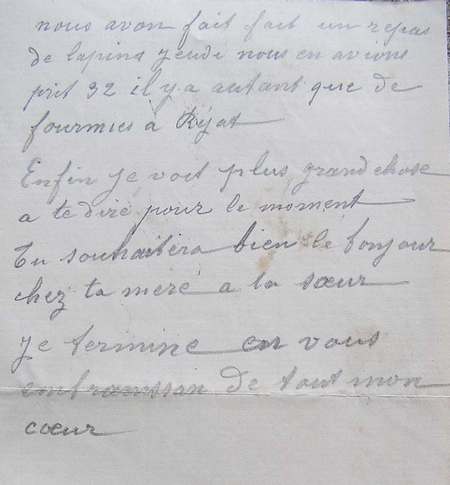 nous avon fait fait un repas
de lapins jeudi nous en avions
prit 32 il y a autant que de
fourmies à Rijat
Enfin je voit plus grand chose
a te dire pour le moment
Tu souhaitera bien le bonjour
chez ta mere a la sœur
Je termine en vous
embrassan de tout mon
cœur